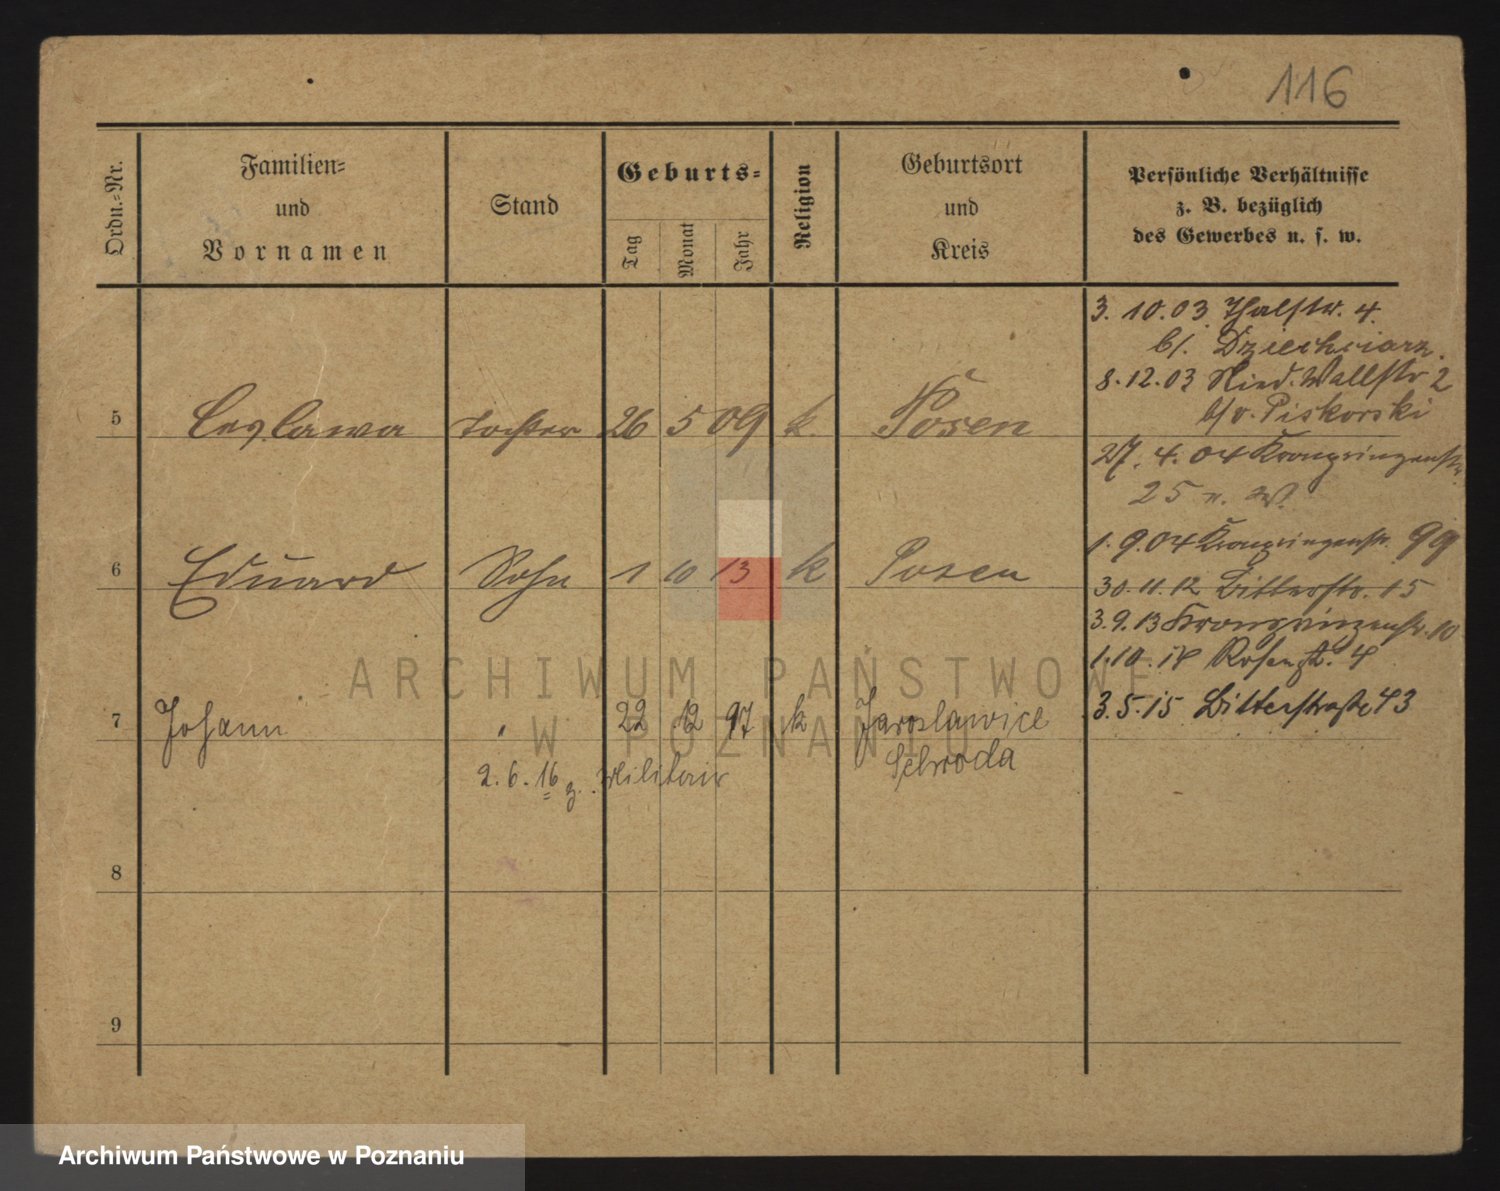 116
Ordn.=Nr.
Familien=
und
Vornamen
Stand
Geburts=
Tag
Monat
Jahr
Religion
Geburtsort
und
Kreis
Persönliche Verhältnisse
z. B. bezüglich
des Gewerbes u. s. w.
3. 10. 03 Thalstr. 4.
b/. Dziechciarz.
8. 12. 03 Nied. Wallstr 2
b/v. Piskorski
5 Ceslawa Tochter 26 5 09 k. Posen
27. 4. 04 Kronprinzenstr.
25 n. W.
1. 9. 04 Kronprinzenstr. 99
6 Eduard Sohn 1 10 13 k Posen
30. 11. 12 Bitterstr. 15
3. 9. 13 Kronprinzenstr. 10
1. 10. 14 Rosenstr. 4
ARCHIWUM PAŃSTWOWE
W POZNANIU
7 Johann " 22 12 97 k Jaroslawice
Schroda
3. 5. 15 Bitterstraße 43
2. 6. 16 z. Militair
8
9
Archiwum Państwowe w Poznaniu